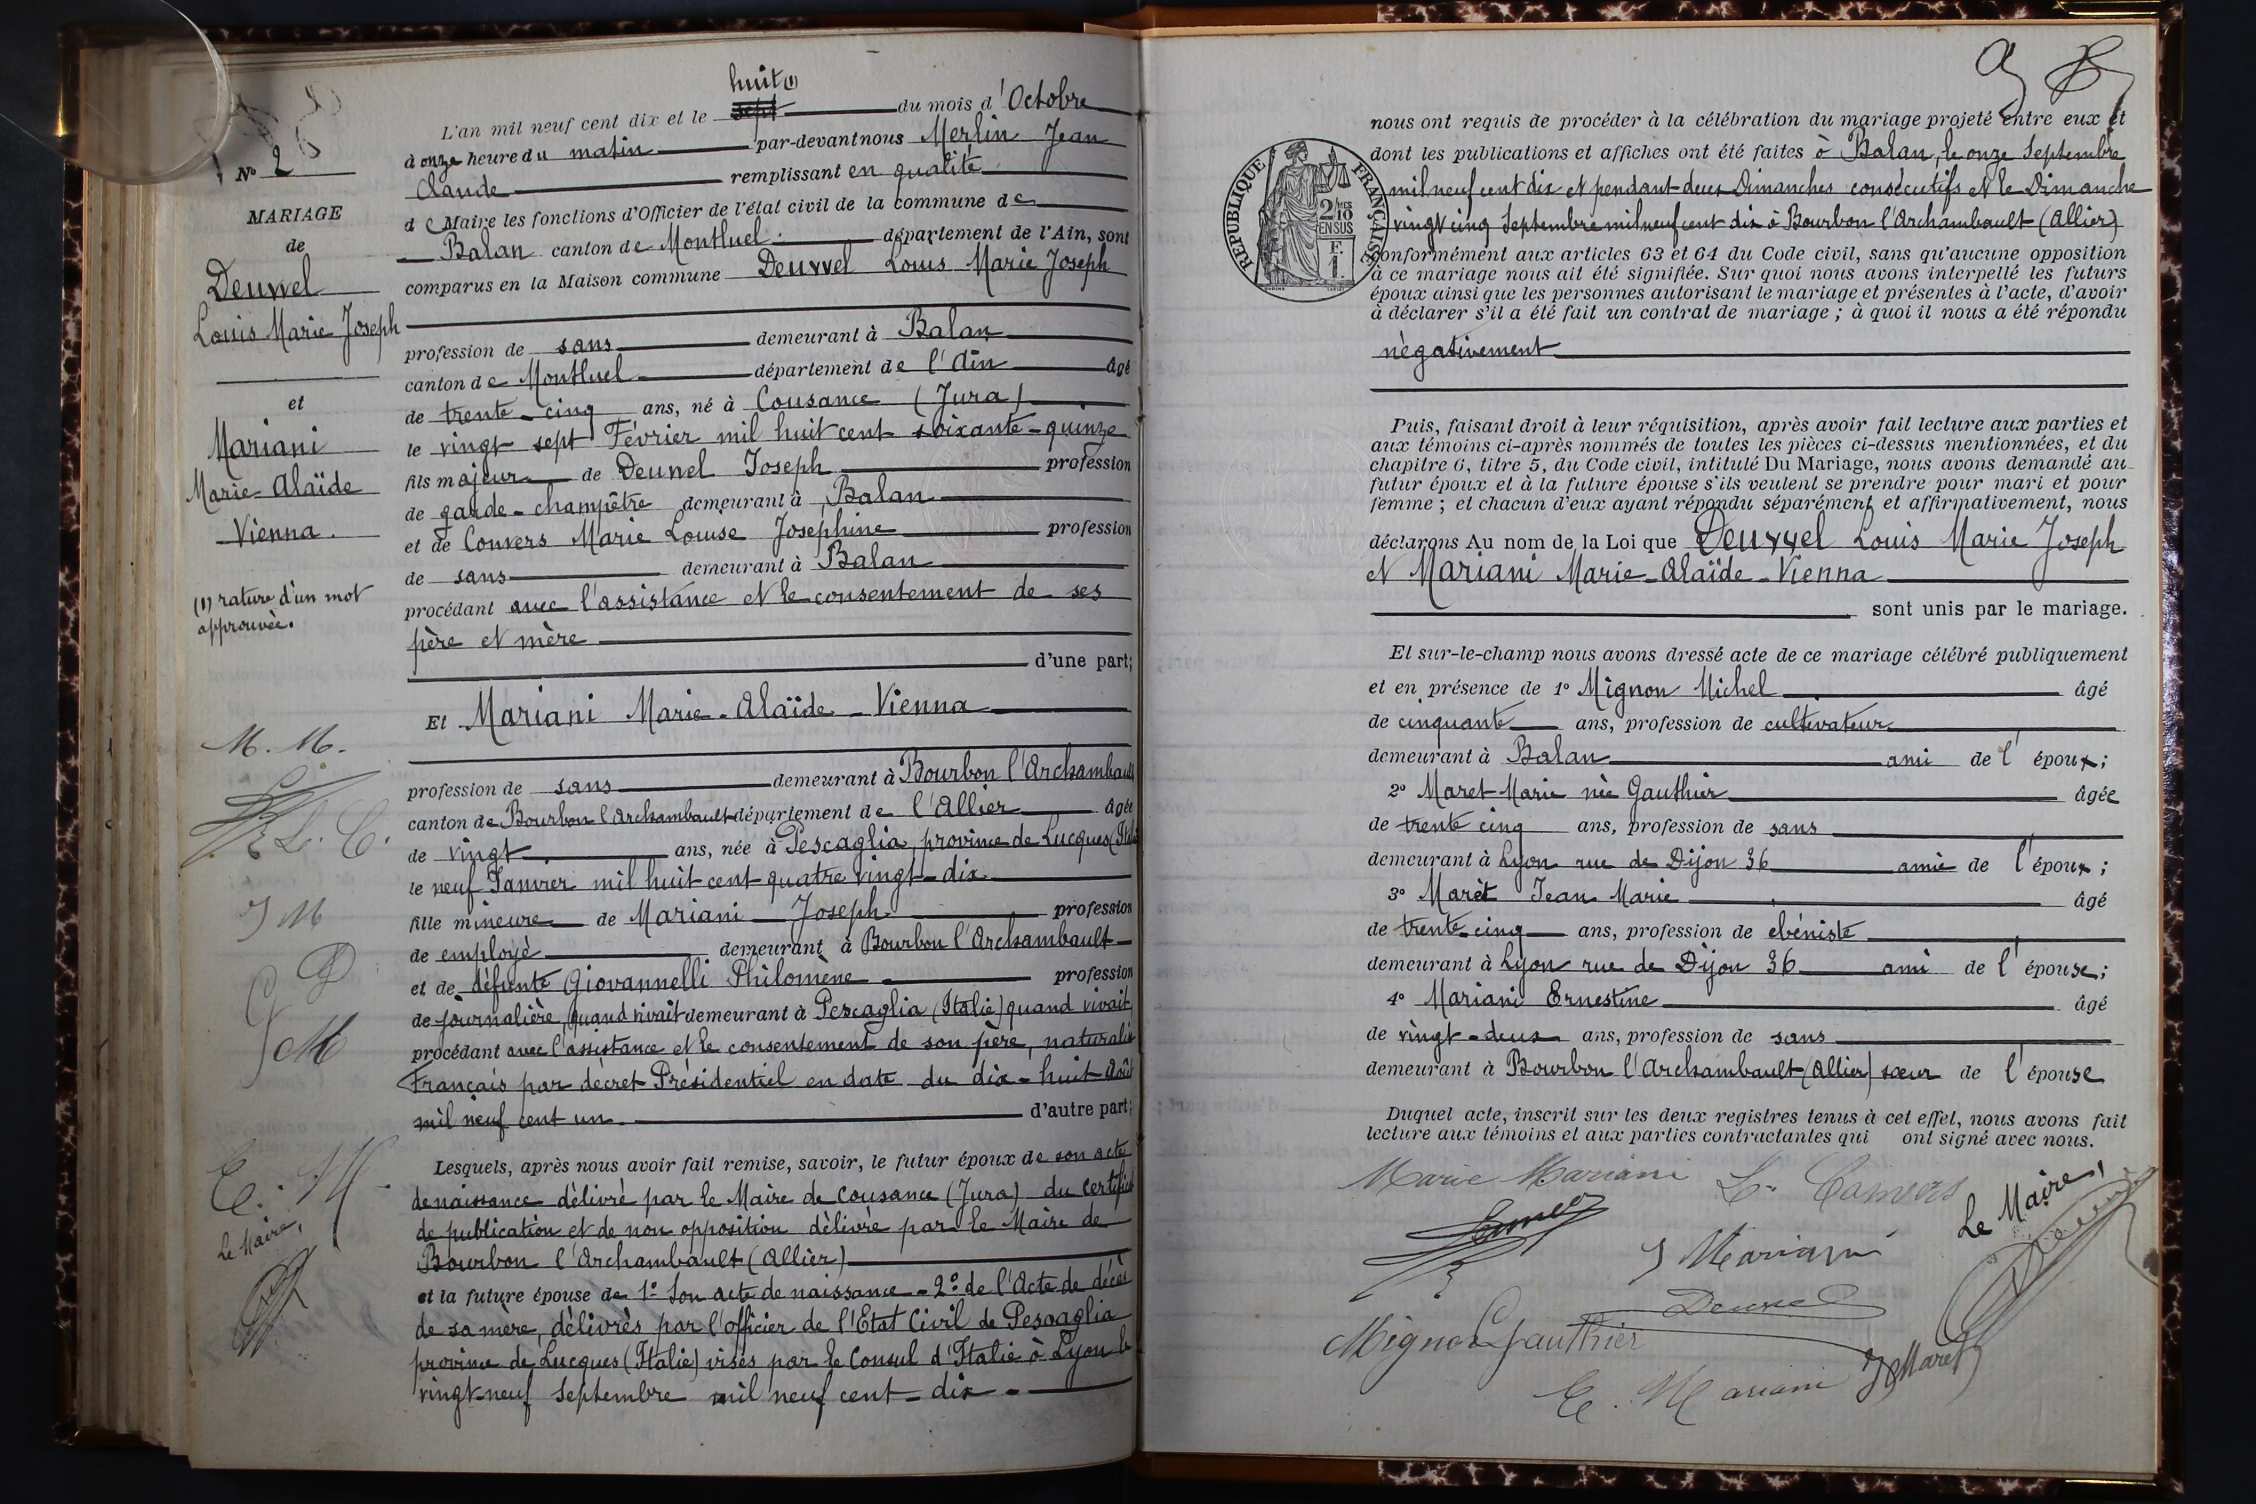 N° 26
MARIAGE
de
Deuvvel
Louis Marie Joseph
et
Mariani
Marie-Alaïde
Vienna.
(1) rature d'un mot
approuvée.
M. M.
L. C.
J M
D
G
M
E. M.
Le Maire,
huit (1)
L'an mil neuf cent dix et le sept du mois d'Octobre
à onze heure du matin par-devant nous Merlin Jean
Claude remplissant en qualité
de Maire les fonctions d'Officier de l'état civil de la commune de
Balan canton de Montluel département de l'Ain, sont
comparus en la Maison commune Deuvvel Louis Marie Joseph
profession de sans demeurant à Balan
canton de Montluel département de l'Ain âgé
de trente-cinq ans, né à Cousance (Jura)
le vingt-sept Février mil huit cent soixante-quinze
fils majeur de Deuvvel Joseph profession
de garde-champêtre demeurant à Balan
et de Convers Marie Louise Josephine profession
de sans demeurant à Balan
procédant avec l'assistance et le consentement de ses
père et mère
d'une part;
Et Mariani Marie-Alaïde-Vienna
profession de sans demeurant à Bourbon l'Archambault
canton de Bourbon l'Archambault département de l'Allier âgée
de vingt ans, née à Pescaglia, province de Lucques (Italie)
le neuf Janvier mil huit cent quatre vingt-dix
fille mineure de Mariani Joseph profession
de employé demeurant à Bourbon l'Archambault
et de défunte Giovannelli Philomène profession
de journalière, quand vivait demeurant à Pescaglia (Italie) quand vivait
procédant avec l'assistance et le consentement de son père, naturalisé
Français par décret Présidentiel en date du dix-huit Août
mil neuf cent un. d'autre part;
Lesquels, après nous avoir fait remise, savoir, le futur époux de son acte
de naissance délivré par le Maire de Cousance (Jura) du certificat
de publication et de non opposition délivré par le Maire de
Bourbon l'Archambault (Allier)
et la future épouse de 1° Son acte de naissance - 2° de l'Acte de décès
de sa mère, délivrés par l'officier de l'Etat Civil de Pescaglia
province de Lucques (Italie) visés par le Consul d'Italie à Lyon le
vingt-neuf Septembre mil neuf cent-dix.
nous ont requis de procéder à la célébration du mariage projeté entre eux et
dont les publications et affiches ont été faites à Balan, le onze Septembre
mil neuf cent dix et pendant deux Dimanches consécutifs et le Dimanche
vingt cinq Septembre mil neuf cent dix à Bourbon l'Archambault (Allier)
conformément aux articles 63 et 64 du Code civil, sans qu'aucune opposition
à ce mariage nous ait été signifiée. Sur quoi nous avons interpellé les futurs
époux ainsi que les personnes autorisant le mariage et présentes à l'acte, d'avoir
à déclarer s'il a été fait un contrat de mariage ; à quoi il nous a été répondu
nègativement
RÉPUBLIQUE FRANÇAISE
2/10 MES
EN SUS
F.
1.
Puis, faisant droit à leur réquisition, après avoir fait lecture aux parties et
aux témoins ci-après nommés de toutes les pièces ci-dessus mentionnées, et du
chapitre 6, titre 5, du Code civil, intitulé Du Mariage, nous avons demandé au
futur époux et à la future épouse s'ils veulent se prendre pour mari et pour
femme ; et chacun d'eux ayant répondu séparément et affirmativement, nous
déclarons Au nom de la Loi que Deuvvel Louis Marie Joseph
et Mariani Marie-Alaïde-Vienna
sont unis par le mariage.
Et sur-le-champ nous avons dressé acte de ce mariage célébré publiquement
et en présence de 1° Mignon Michel âgé
de cinquante ans, profession de cultivateur
demeurant à Balan ami de l'époux;
2° Maret Marie née Gauthier âgée
de trente cinq ans, profession de sans
demeurant à Lyon rue de Dijon 36 amie de l'époux ;
3° Marèt Jean Marie âgé
de trente-cinq ans, profession de ebéniste
demeurant à Lyon rue de Dijon 36 ami de l'épouse;
4° Mariani Ernestine âgé
de vingt-deux ans, profession de sans
demeurant à Bourbon l'Archambault (Allier) sœur de l'épouse
Duquel acte, inscrit sur les deux registres tenus à cet effet, nous avons fait
lecture aux témoins et aux parties contractantes qui ont signé avec nous.
Marie Mariani L. Convers
Le Maire,
J Mariani
Deuvvel
Mignon Gauthier
E. Mariani J Maret